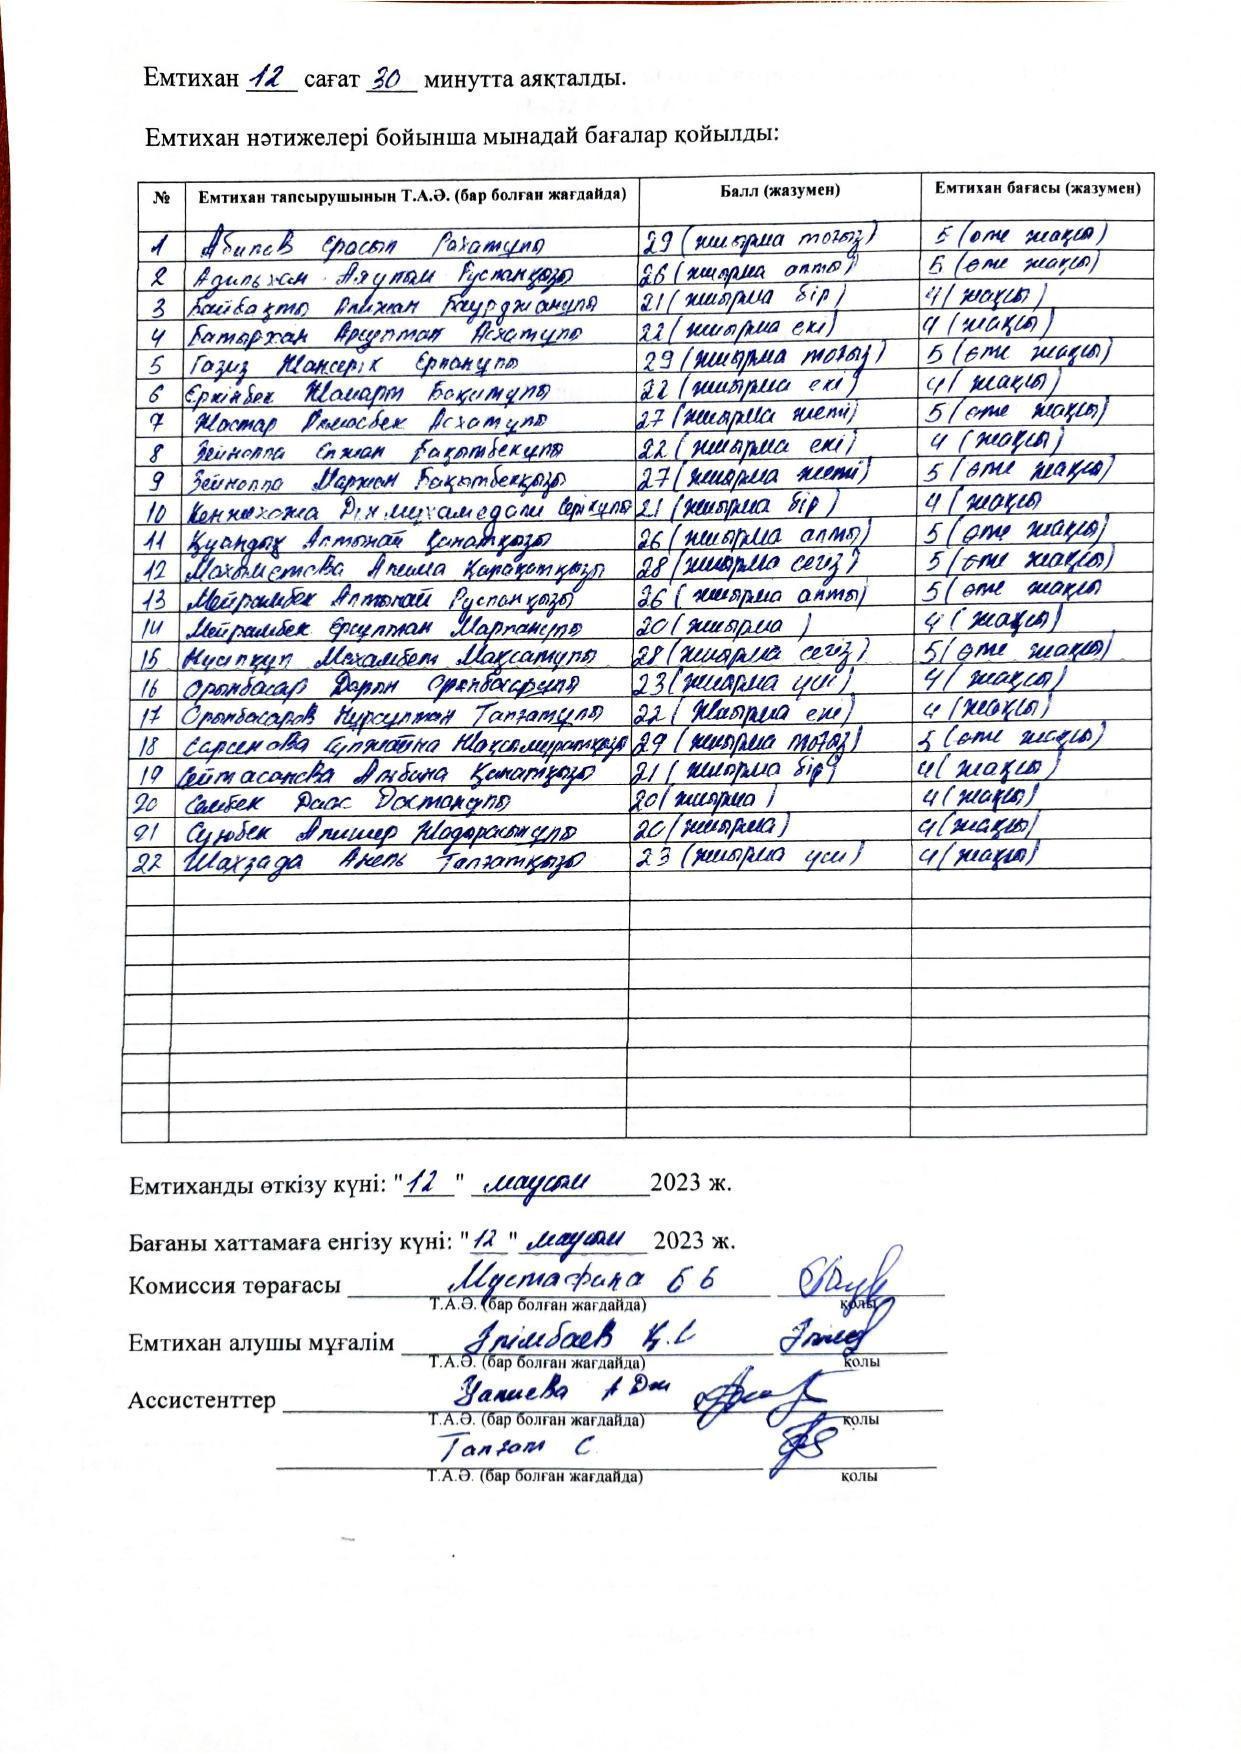 Емтихан 12 сағат 30 минутта аяқталды.
Емтихан нәтижелері бойынша мынадай бағалар қойылды:
№ Емтихан тапсырушының Т.А.Ә. (бар болған жағдайда) Балл (жазумен) Емтихан бағасы (жазумен)
1 Абилов Ерасыл Рахатұлы 29 (жиырма тоғыз) 5 (өте жақсы)
2 Адильхан Аяулым Русланқызы 26 (жиырма алты) 5 (өте жақсы)
3 Байбақты Алихан Бауржанұлы 21 (жиырма бір) 4 (жақсы)
4 Батырхан Арсұлтан Асхатұлы 22 (жиырма екі) 4 (жақсы)
5 Газиз Жансерік Ерланұлы 29 (жиырма тоғыз) 5 (өте жақсы)
6 Еркінбек Жомарт Бақытұлы 22 (жиырма екі) 4 (жақсы)
7 Жастар Алмасбек Асхатұлы 27 (жиырма жеті) 5 (өте жақсы)
8 Зейнолла Елжан Бақытбекұлы 22 (жиырма екі) 4 (жақсы)
9 Зейнолла Маржан Бақытбекқызы 27 (жиырма жеті) 5 (өте жақсы)
10 Кенжеходжа Дінмұхамедәли Серікұлы 21 (жиырма бір) 4 (жақсы
11 Қуандық Алтынай Қанатқызы 26 (жиырма алты) 5 (өте жақсы)
12 Махамбетова Алима Қарақатқызы 28 (жиырма сегіз) 5 (өте жақсы)
13 Мейрамбек Алтынай Русланқызы 26 (жиырма алты) 5 (өте жақсы
14 Мейрамбек Ерсұлтан Марланұлы 20 (жиырма) 4 (жақсы)
15 Нүсіпқұл Махамбет Мақсатұлы 28 (жиырма сегіз) 5 (өте жақсы)
16 Орынбасар Дарын Орынбасарұлы 23 (жиырма үш) 4 (жақсы)
17 Орынбасаров Нұрсұлтан Талғатұлы 22 (жиырма екі) 4 (жақсы)
18 Сарсенова Гүлжайна Жақсымұратқызы 29 (жиырма тоғыз) 5 (өте жақсы)
19 Сейтасанова Альбина Қанатқызы 21 (жиырма бір) 4 (жақсы)
20 Сембек Дастанұлы 20 (жиырма) 4 (жақсы)
21 Сүюбек Алишер 20 (жиырма) 4 (жақсы)
22 Шахзада Анель Талғатқызы 23 (жиырма үш) 4 (жақсы)
Емтиханды өткізу күні: "12" маусым 2023 ж.
Бағаны хаттамаға енгізу күні: "12" маусым 2023 ж.
Комиссия төрағасы Мустафина Б Б
Т.А.Ә. (бар болған жағдайда) қолы
Емтихан алушы мұғалім Әлімбаев Қ.С
Т.А.Ә. (бар болған жағдайда) қолы
Ассистенттер Уалиева А Дж
Т.А.Ә. (бар болған жағдайда) қолы
Талғат С
Т.А.Ә. (бар болған жағдайда) қолы